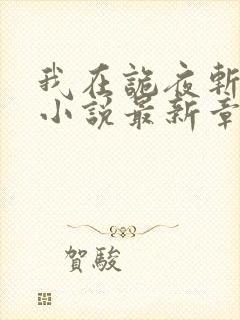 我在詭夜斬
小說最新章
賀駿